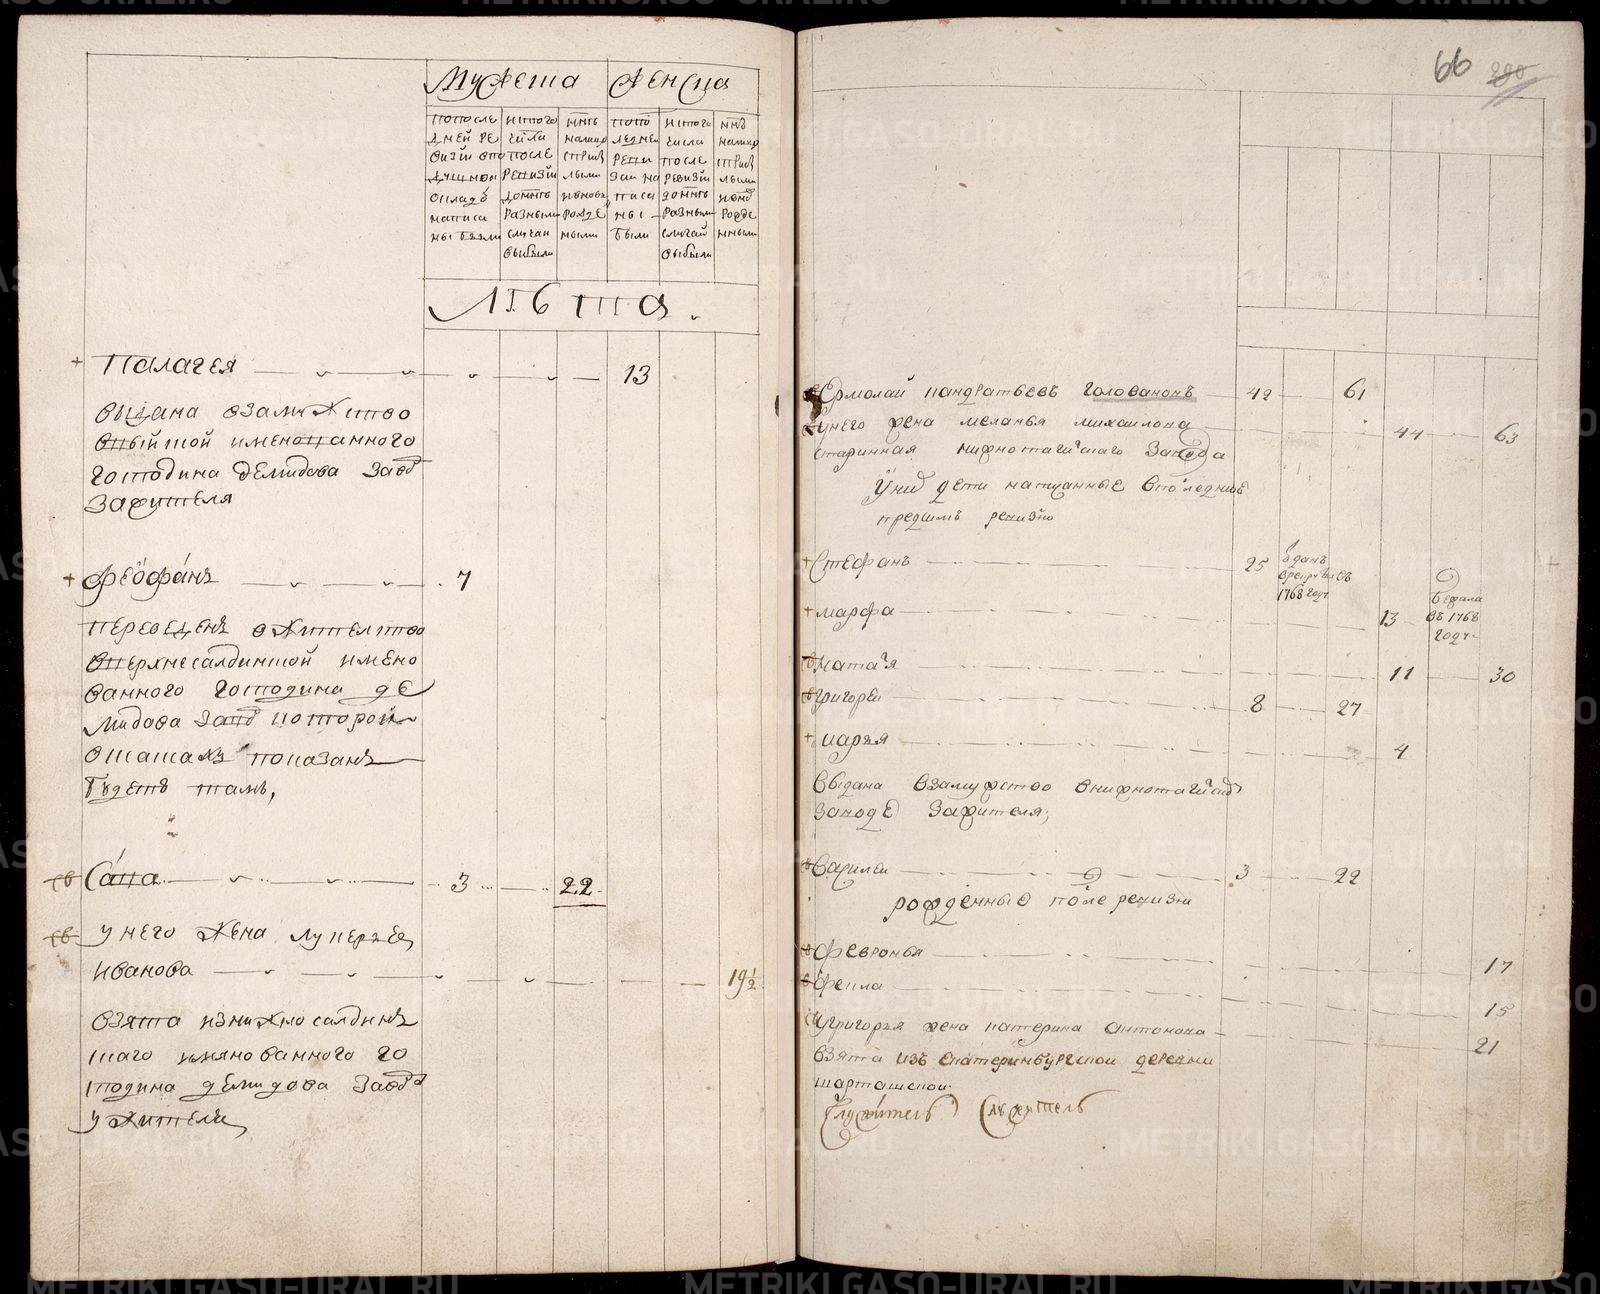 Мужеска Женска
попосле
дней ре
визіи впо
душной
окладъ
написа
ны были
истого
числа
после
ревизіи
домнѣ
разными
случаи
выбыли
ннѣ
налицо
списѣ
лыми
иновь
рожде
ными
попо
ледне
реви
зии на
писа
ны
были
истого
числа
после
ревизіи
домнѣ
разными
случаи
выбыли
ннѣ
налицо
Лѣта.
Палагея 13
выдана взамужство
имянованного
господина демидова завод
зажителя
Феофанъ 7
переведенъ вжителство
вверхнесалдинской имено
ванного господина де
мидова завод которой
показанъ
будетъ тамъ,
Сава 3 22
у него жена лукерья
иванова 19 1/2
взята изнижносалдинъ
скаго имянованного го
сподина демидова завод
ужителя
66 280
Ермолай кандратьевъ голованонъ 42 61
унего жена меланья михаилова 44 63
старинная нижнотагилскаго завода
Унихъ дети написанные впоследнюю
пред симъ ревизию
Стефанъ 25 зданъ
врекруты въ
1768 году
марфа 13
бежала
въ 1768
году
ната'я 11 30
григореи 8 27
марья 4
выдана взамужство внижнотагилской
заводе зажителя;
Василеи 3 22
рожденные после ревизии
февронья 17
фекла 15
Угригорья жена катерина антонова 21
взята изъ екатеринбургской деревни
шарташской.
Служитель Служитель